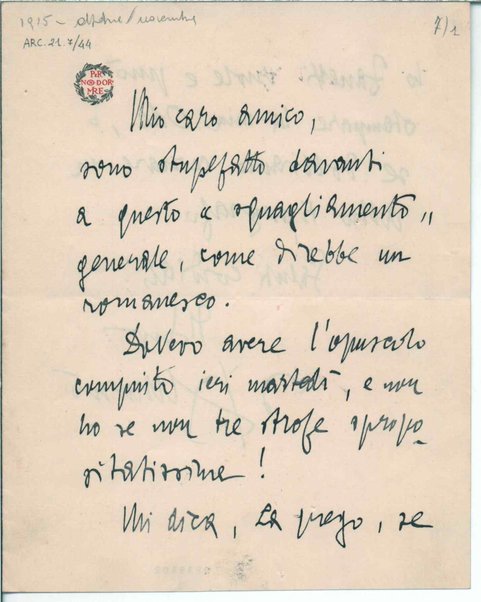 1915 - ottobre/novembre
ARC. 21. 7/44
7/1
PER
NON DOR
MIRE
Mio caro amico,
sono stupefatto davanti
a questo « squagliamento „
generale come direbbe un
romanesco.
Dovevo avere l'opuscolo
compiuto ieri martedì, e non
ho se non tre strofe spropo-
sitatissime!
Mi dica, La prego, se